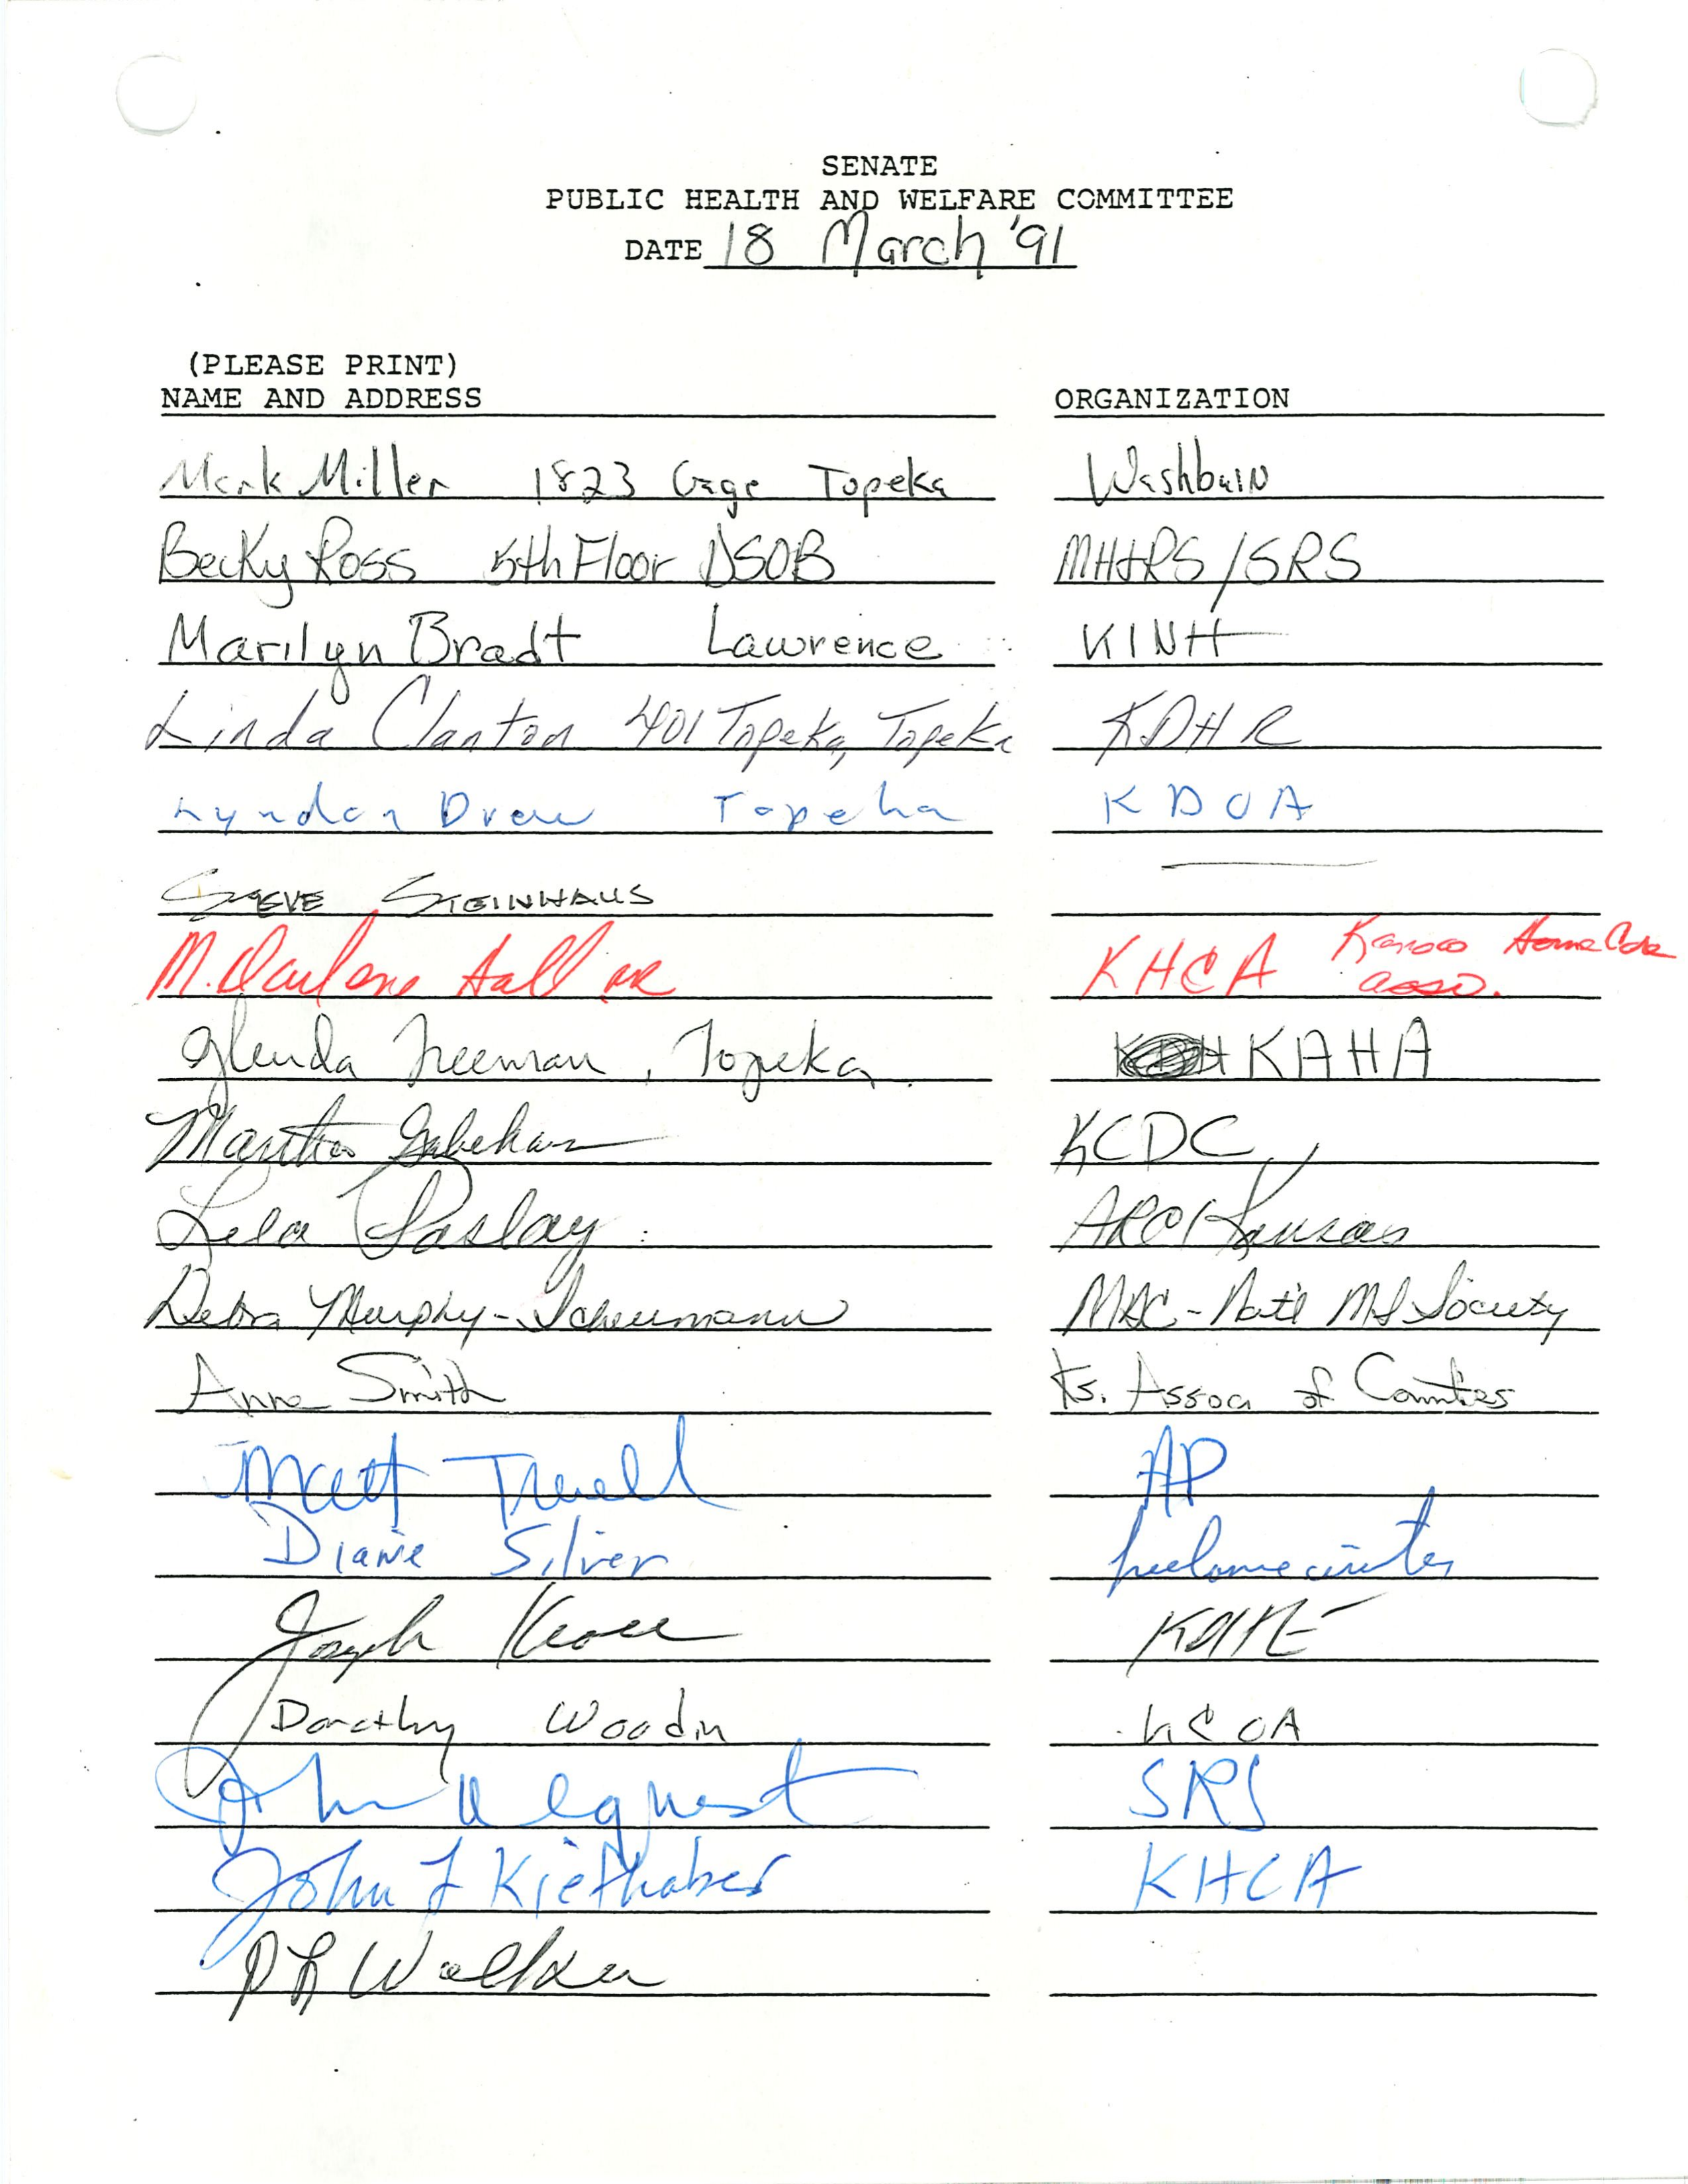 SENATE
PUBLIC HEALTH AND WELFARE COMMITTEE
DATE 18 March '91
(PLEASE PRINT)
NAME AND ADDRESS ORGANIZATION
Mark Miller 1823 Gage Topeka Washburn
Becky Ross 5th Floor DSOB MH&RS/SRS
Marilyn Bradt Lawrence KINH
Linda Clanton 401 Topeka, Topeka KDHR
Lyndon Drew Topeka KDOA
STEVE STEINHAUS
M. Darlene Hall KHCA Kansas Home Care
Asso.
Glenda Freeman, Topeka KAHA
Martha KCDC
Lela Paslay ARC/Kansas
Debra Murphy-Scheumann Nat'l MS Society
Anne Smith Ks. Assoc of Counties
Matt Truell AP
Diane Silver freelance writer
Joseph Kroll KDHE
Dorothy Woodin KCOA
John SRS
John L Kiefhaber KHCA
Walker